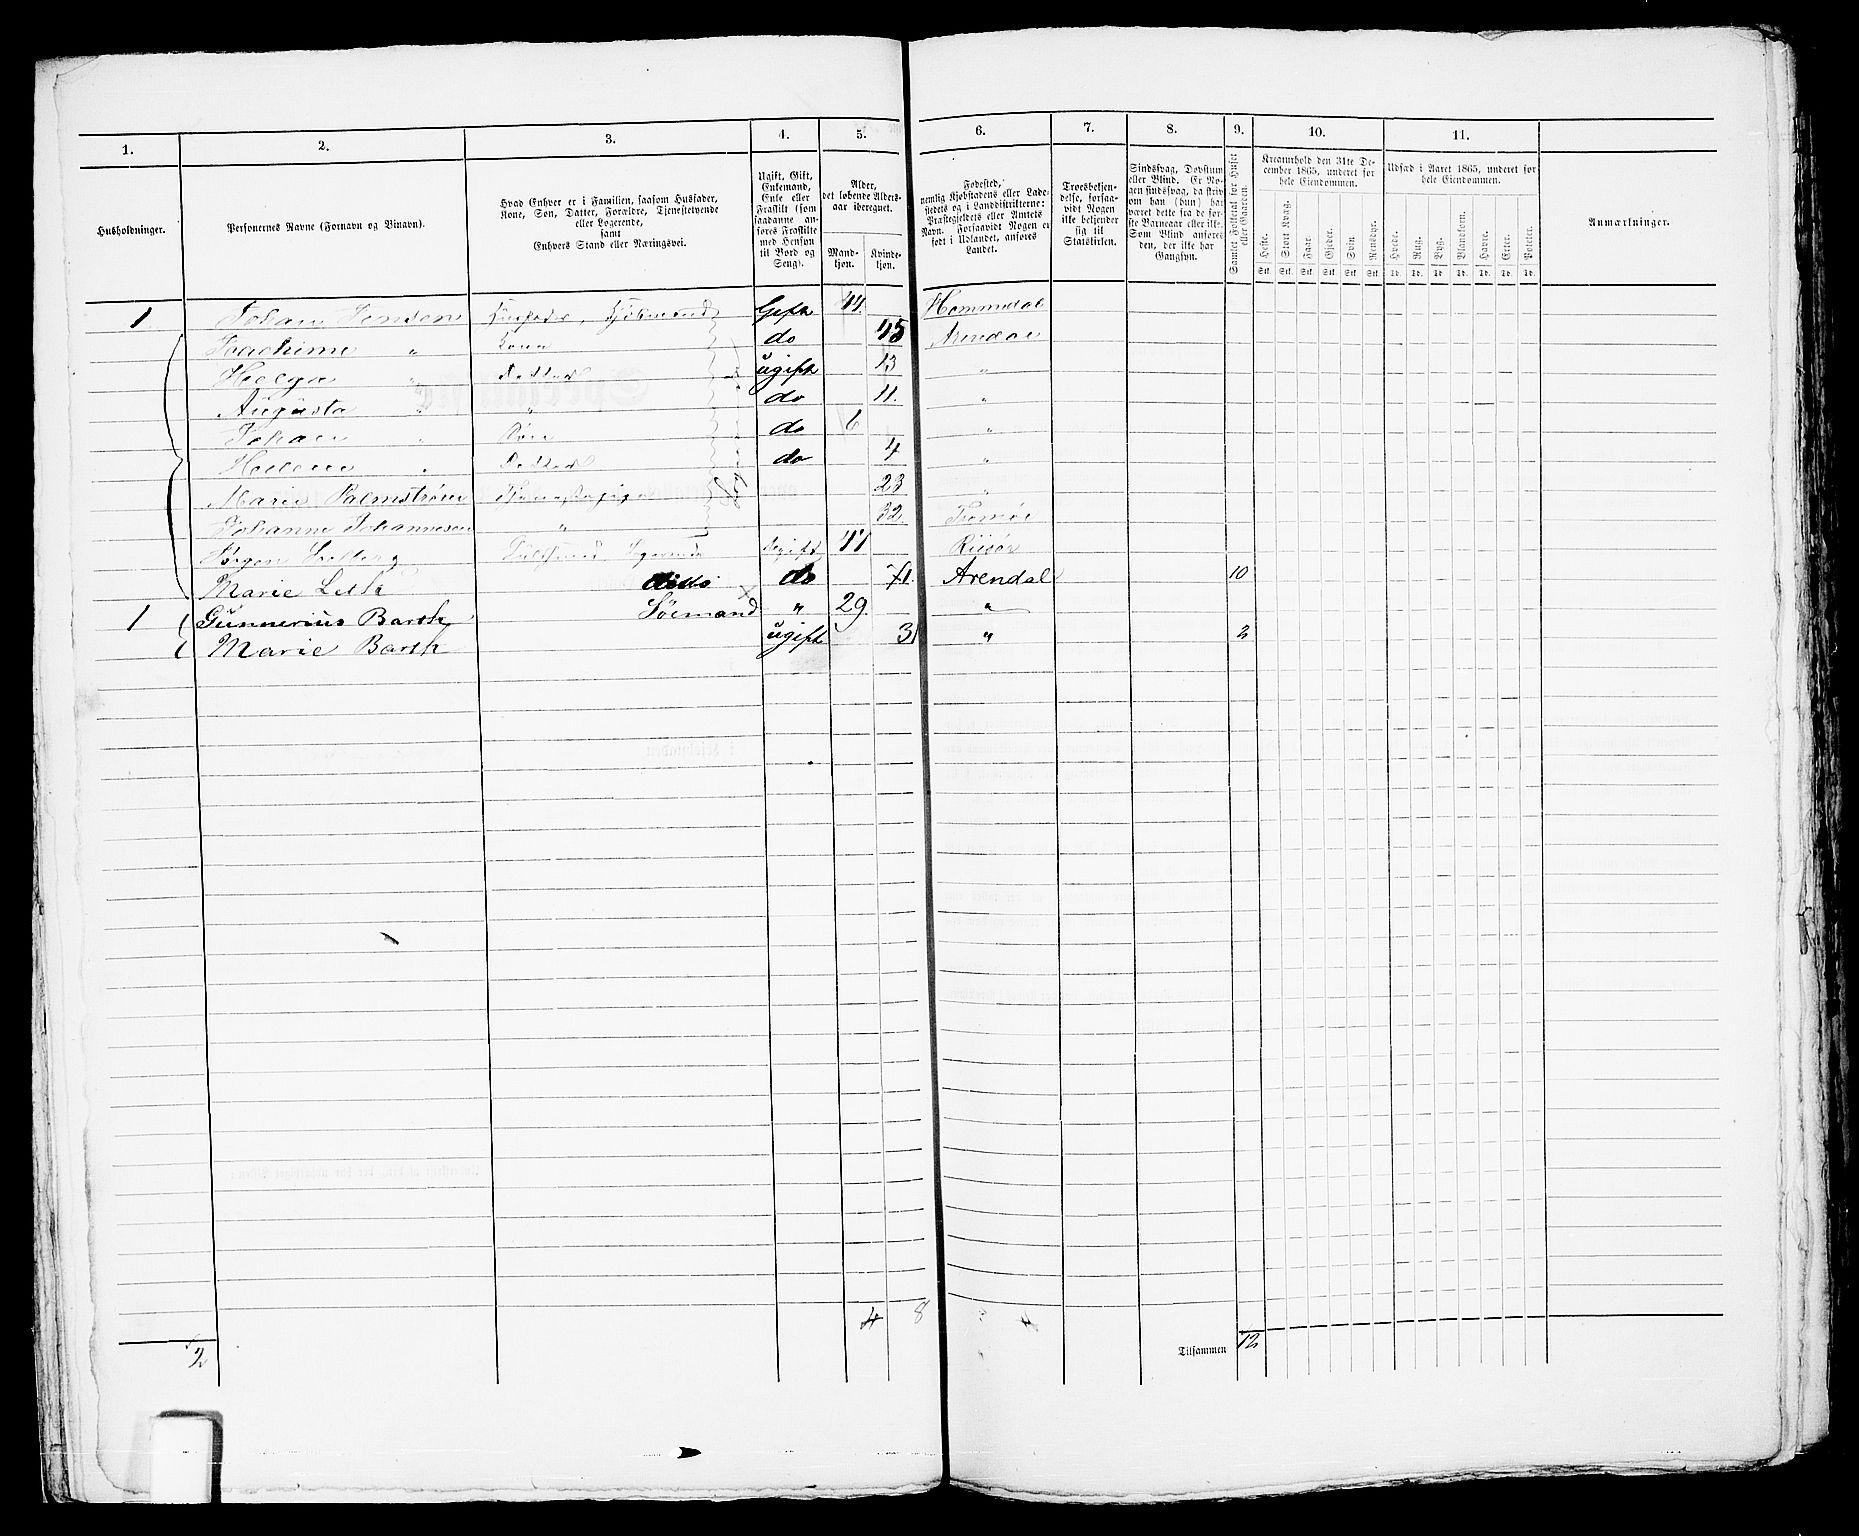 1. 2. 3. 4. 5. 6. 7. 8. 9. 10. 11.
Husholdninger.
Personernes Navne (Fornavn og Binavn).
Hvad Enhver er i Familien, saasom Husfader,
Kone, Søn, Datter, Forældre, Tjenestetyende
eller Logerende,
samt
Enhvers Stand eller Næringsvei.
Ugift, Gift,
Enkemand,
Enke eller
Fraskilt (som
saadanne an-
føres Fraskilte
med Hensyn
til Bord og
Seng).
Alder,
det løbende Alders-
aar iberegnet.
Mand-
kjøn.
Kvinde-
kjøn.
Fødested,
nemlig Kjøbstadens eller Lade-
stedets og i Landdistrikterne:
Præstegjeldets eller Amtets
Navn. Forsaavidt Nogen er
født i Udlandet, anføres
Landet.
Troesbekjen-
delse, forsaa-
vidt Nogen
ikke bekjender
sig til
Statskirken.
Sindssvag, Døvstum
eller Blind. Er No-
gen sindssvag, da skrives
om han (hun) har
været dette fra de før-
ste Barneaar eller ikke.
Som Blind anføres
den, der ikke har
Gangsyn.
Samlet Folketal for Huset
eller Gaarden.
Kreaturhold den 31te De-
cember 1865, underet for
hele Eiendommen.
Heste. Stort Kvæg. Faar. Gjeder. Svin. Rensdyr.
Stk. Stk. Stk. Stk. Stk. Stk.
Udsæd i Aaret 1865, underet for
hele Eiendommen.
Hvede. Rug. Byg. Blandkorn. Havre. Erter. Poteter.
Td. Td. Td. Td. Td. Td. Td.
Anmærkninger.
1 Johan Jensen Husfader, Gift 44 Hommedal
Joachime " Kone do 45 Arendal
Helga " Datter ugift 13 "
Augusta " " do 11. "
Johan " Søn do 6 "
Helene " Datter do 4 "
Marie Palmstrøm Tjenestepige 23 "
Johanne Johannesen " 32 Tromøe
Logerende ugift Risør
Marie Leth dito do 71. Arendal 10
1 Gunnerius Barth Sømand " 29. "
Marie Barth ugift 31 " 2
2 4 8 Tilsammen 12